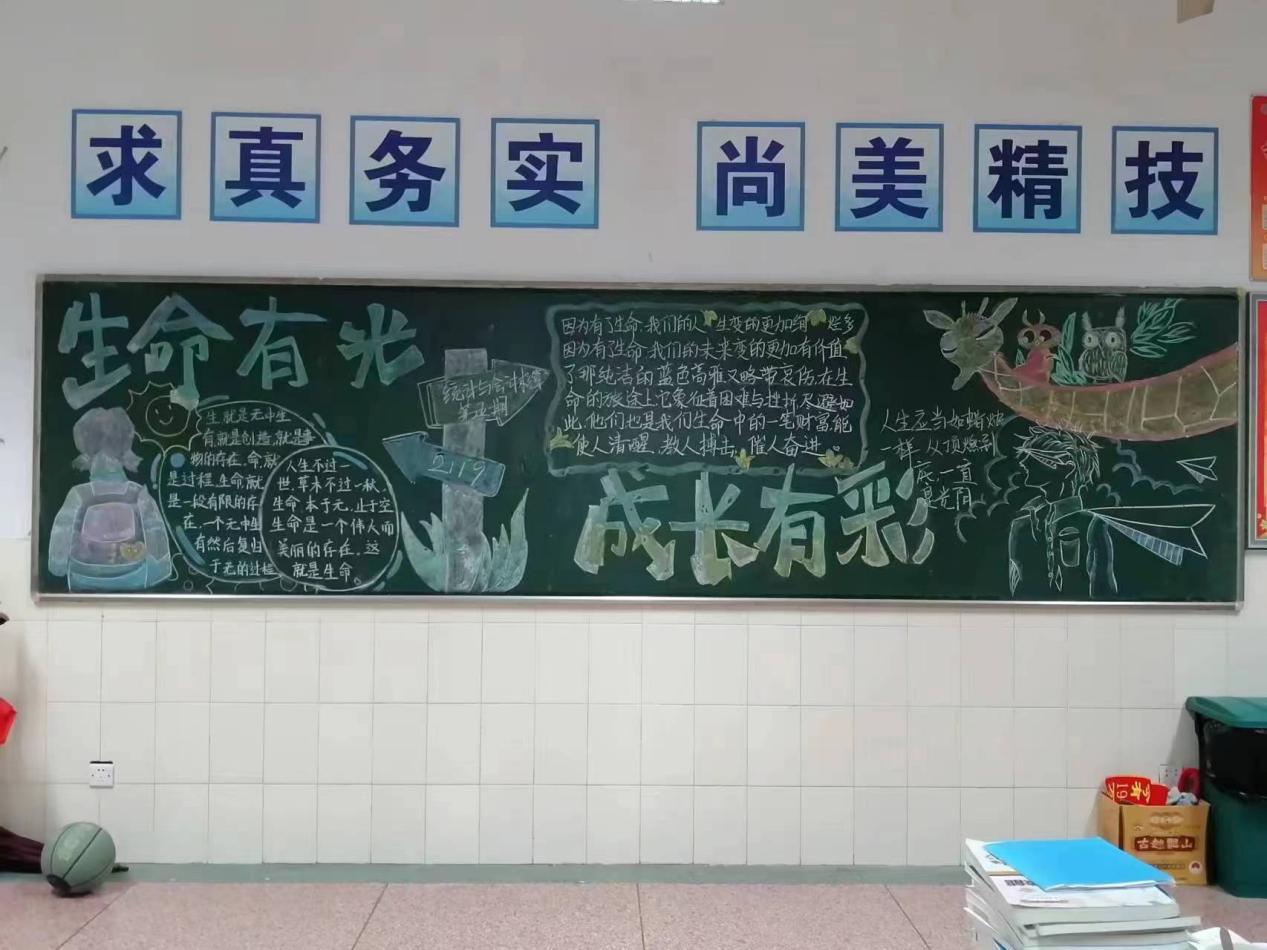 求真务实 尚美精技
生命有光
生就是无中生
有就是创造,就是事
物的存在.命,就
是过程,生命就
是一段有限的存
在.一个无中生
有然后复归
于无的过程
人生不过一
世,草木不过一秋
生命本于无,止于空
生命是一个伟人而
美丽的存在.这
就是生命.
统计与会计核算
第五期
2119
因为有了生命,我们的人生变的更加绚 悠多
因为有了生命,我们的未来变的更加有价值
了那纯洁的蓝色高雅又略带哀伤,在生
命的旅途上它象征着困难与挫折尽避如
此,他们也是我们生命中的一笔财富能
使人清醒.教人搏击,催人奋进.
成长有彩
人生应当如蜡烛
一样,从顶燃到
底,一直
是光阴
古越龙山